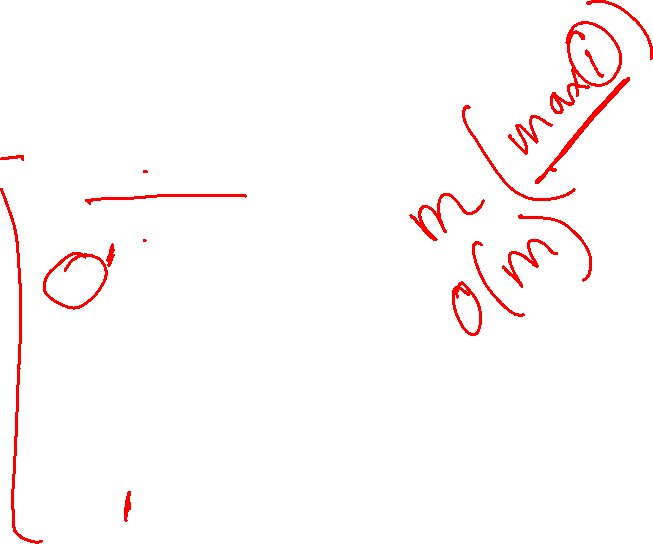 m(max i)
O(m)